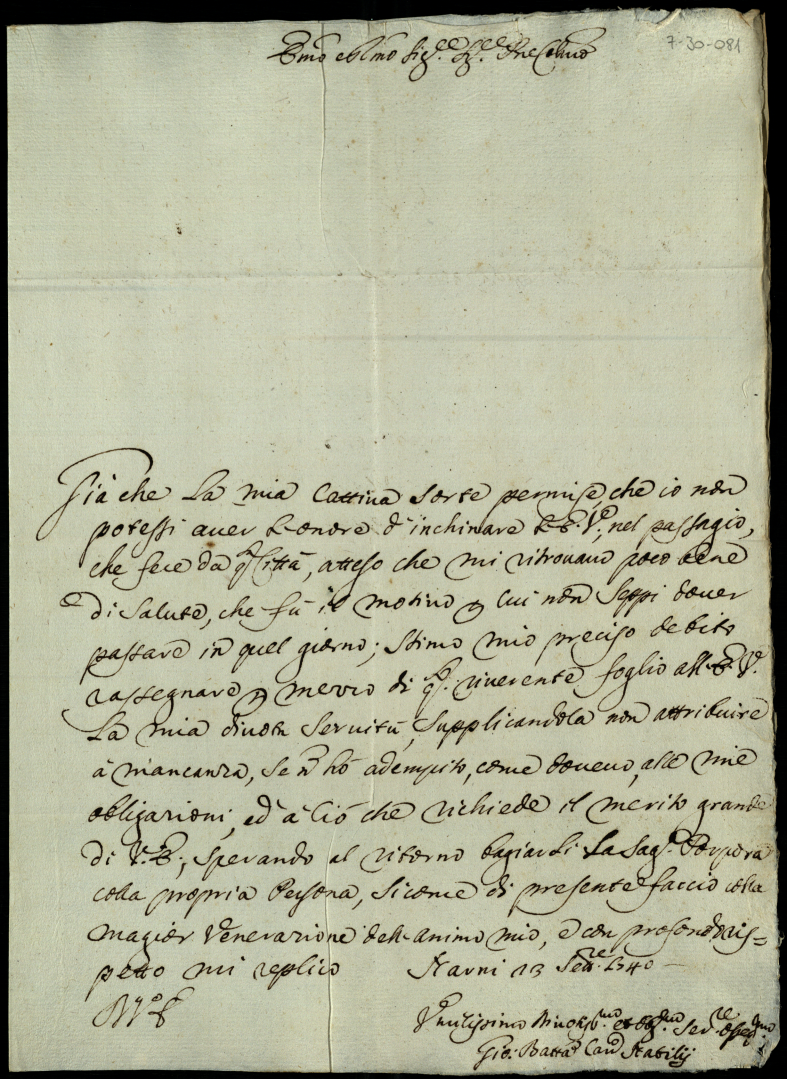 7-30-081
Emo e Rmo Sig.re Sig.re Prõne Colmo
Già che la mia Cattiva sorte permise, che io non
potessi aver l'onore d'inchinare l'E. V.ª nel passagio,
che fece da q.ª Città, atteso che mi ritrovavo poco bene
di salute, che fù il motivo p cui non seppi dover
passare in quel giorno; stimo mio preciso debito
rassegnare p mezzo di q.º riverente foglio all'E. V.ª
La mia divota servitù, supplicandola non attribuire
à mancanza, se ñ hò adempito, come dovevo, alle mie
obligazioni, ed à ciò che richiede il merito grande
di V. E., sperando al ritorno bagiarLi La Sag.ª Porpora
colla propria Persona, sicome di presente faccio colla
magior Venerazione dell'animo mio, e con profondo ris=
petto mi replico Narni 13 Sett.re 1740
Umilissimo Divotis.mo et Obg.mo Ser.re Osseq.mo
Gio: Batta Can.º Stabilij